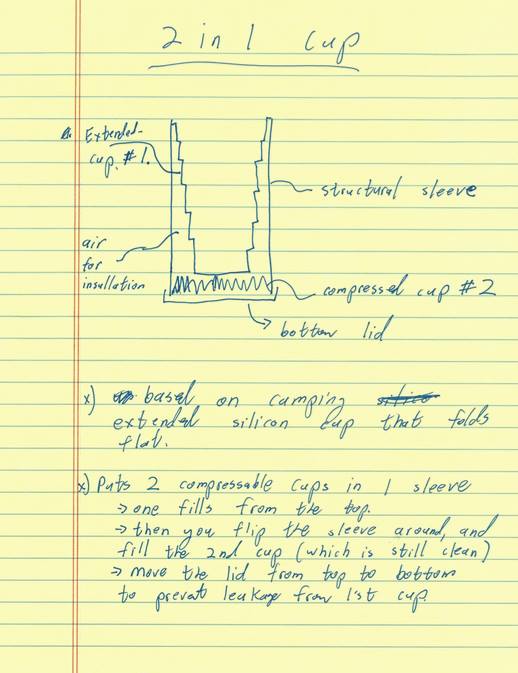 2 in 1 cup
Extended
cup #1.
structural sleeve
air
for
insullation
compressed cup #2
bottom lid
x) based on camping
extended silicon cup that folds
flat.
x) Puts 2 compressable cups in 1 sleeve
→ one fills from the top.
→ then you flip the sleeve around, and
fill the 2nd cup (which is still clean)
→ move the lid from top to bottom
to prevent leakage from 1'st cup.